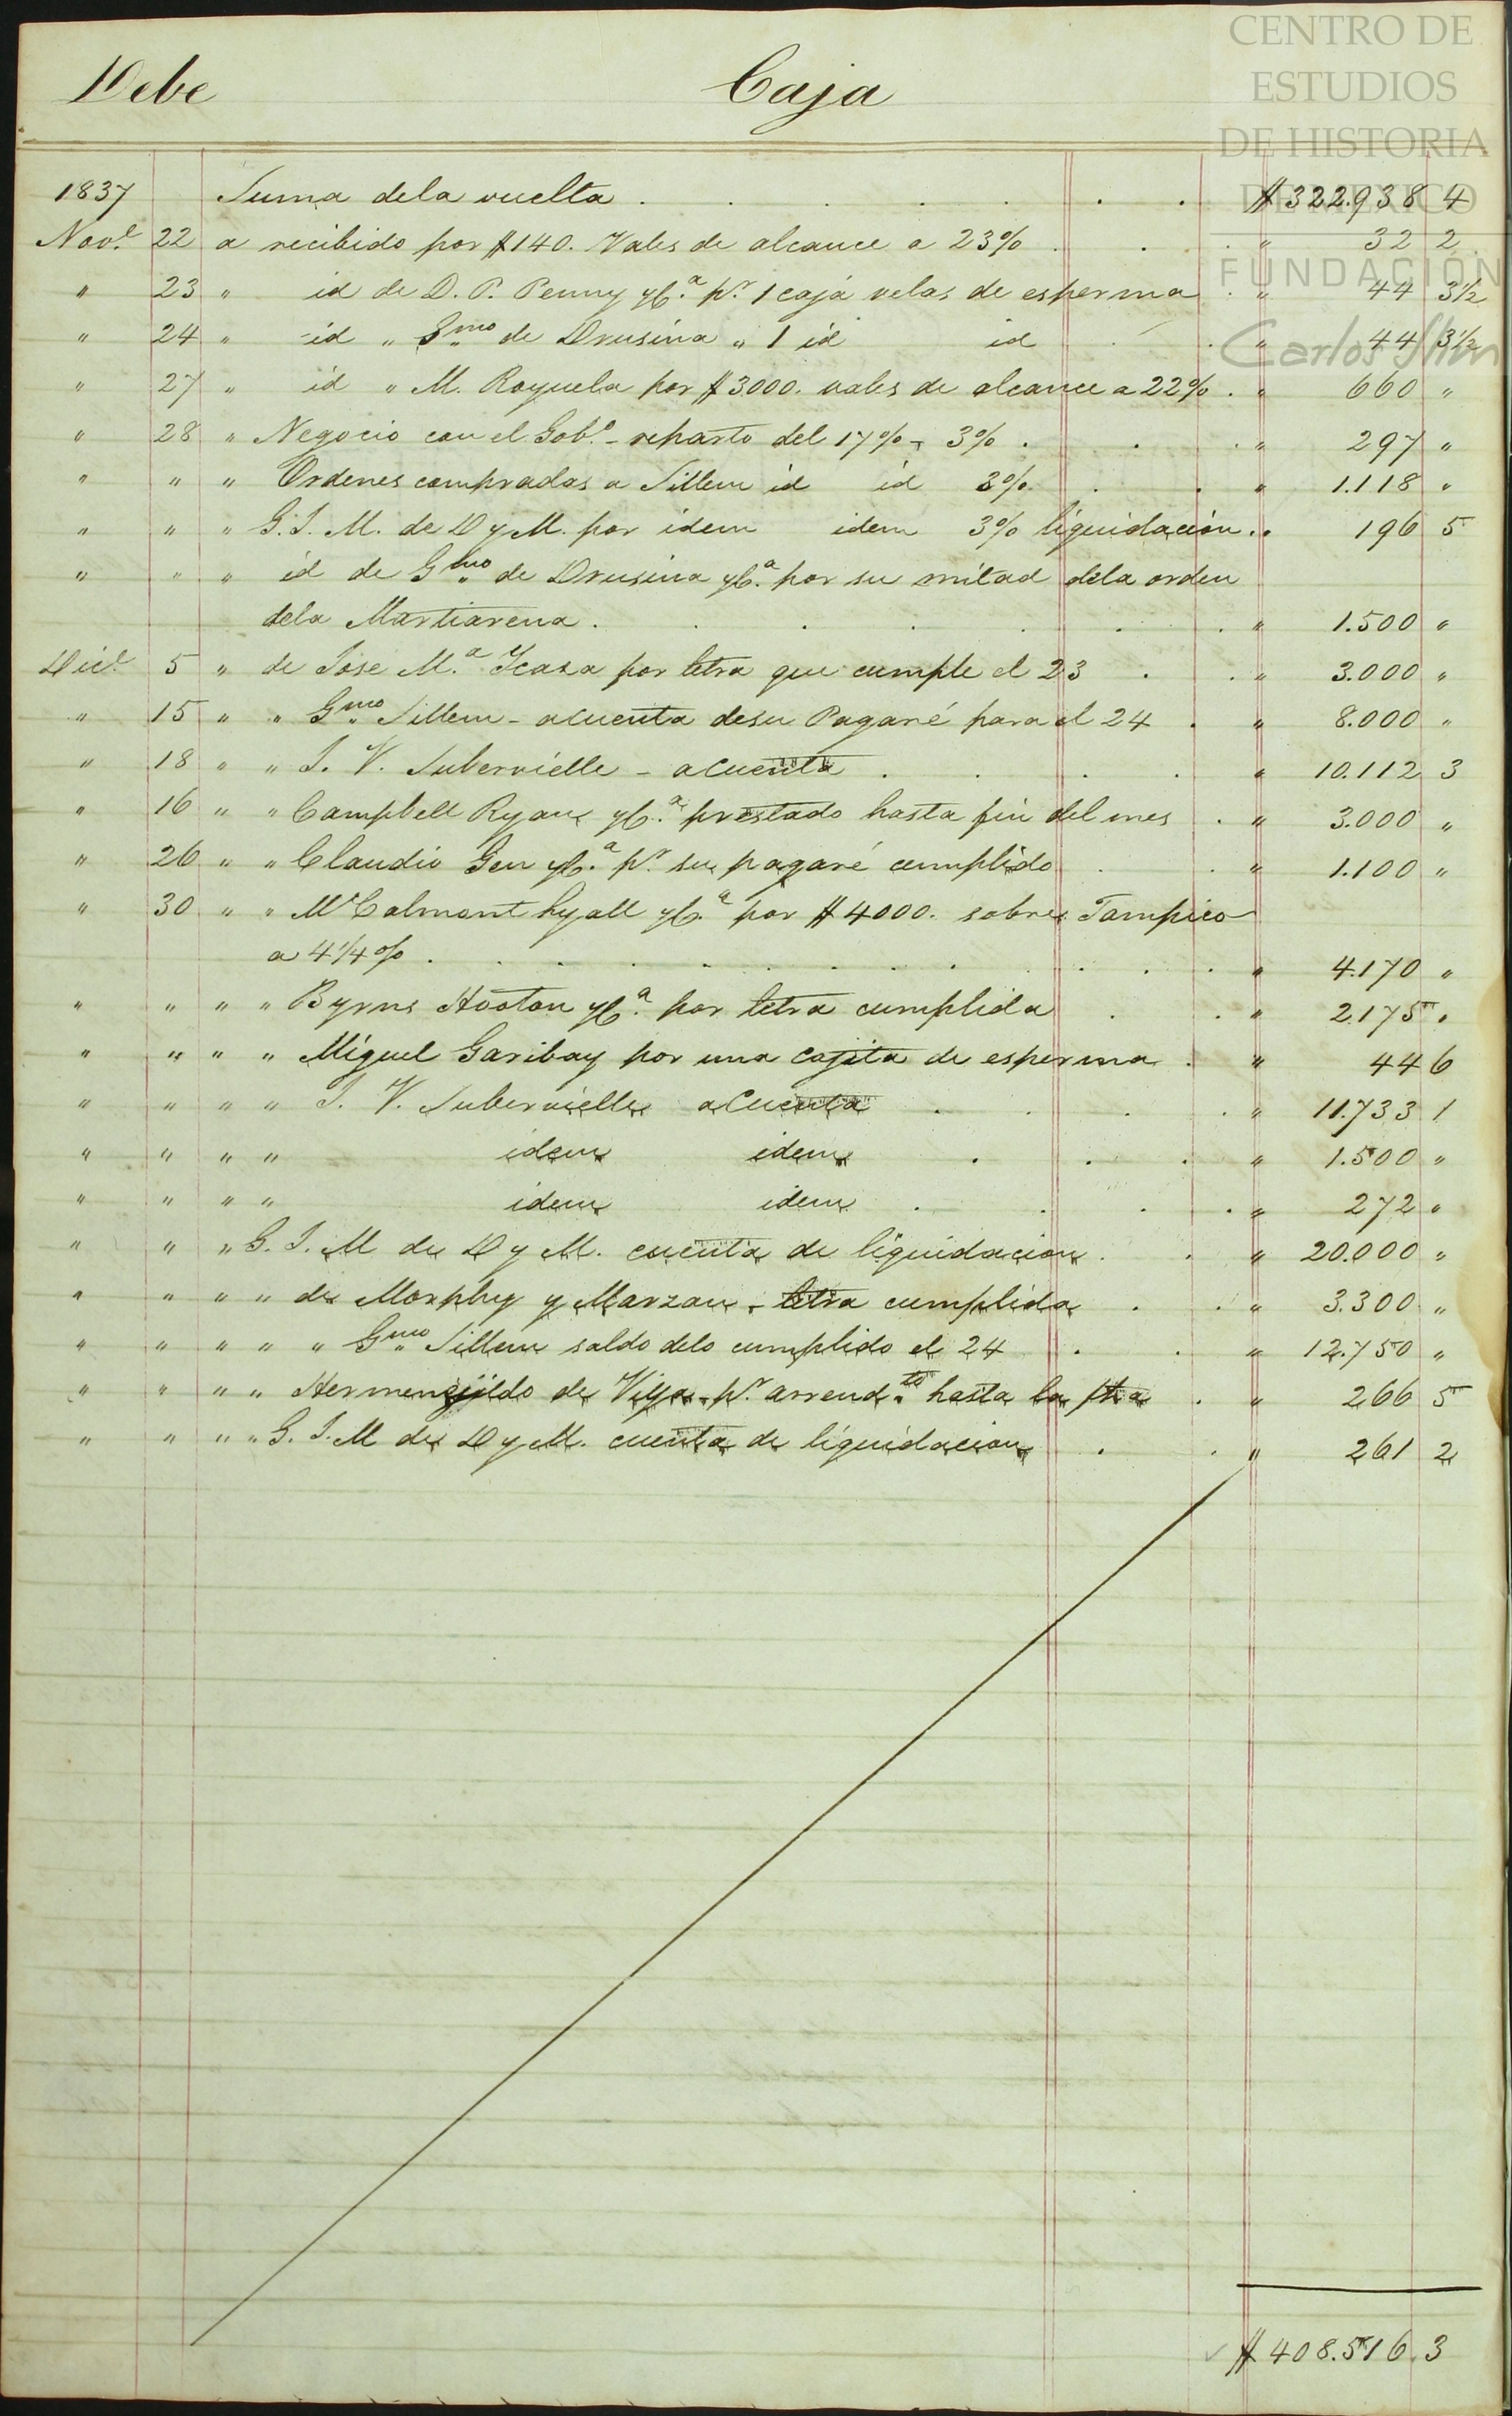 CENTRO DE
ESTUDIOS
DE HISTORIA
DE MÉXICO
FUNDACIÓN
Carlos Slim
Debe Caja
1837 Suma dela vuelta . . . . . . . $ 322.938 4
Nov.e 22 a recibido por $140. Vales de alcance a 23% . . . " 32 2
" 23 " id de D. P. Penny yC.a p.r 1 caja velas de esperma . " 44 3½
" 24 " id " Gmo de Drusina " 1 id id . . " 44 3½
" 27 " id " M. Royuela por $3000. vales de alcance a 22% . " 660 "
" 28 " Negocio con el Gob.o - reparto del 17% - 3% . . . " 297 "
" " " Ordenes compradas a Sillem id id 3% . . " 1.118 "
" " " G. J. M. de D y M. por idem idem 3% liquidacion . " 196 5
" " " id de Gmo de Drusina yC.a por su mitad dela orden
dela Martiarena . . . . . . . " 1.500 "
Dic.e 5 " de José M.a Icaza por letra que cumple el 23 . . " 3.000 "
" 15 " " Gmo Sillem - acuenta desu Pagaré para el 24 . " 8.000 "
" 18 " " J. V. Subervielle - acuenta . . . . " 10.112 3
" 16 " " Campbell Ryan yC.a prestado hasta fin del mes . " 3.000 "
" 26 " " Claudio Gen yC.a p.r su pagaré cumplido . . " 1.100 "
" 30 " " McCalmont Lyall yC.a por $4000. sobre Tampico
a 4¼% . . . . . . . . . . " 4.170 "
" " " " Byrns Hooton yC.a por letra cumplida . . " 2.175 "
" " " " Miguel Garibay por una cajita de esperma . " 44 6
" " " " J. V. Subervielle acuenta . . . . " 11.733 1
" " " " idem idem . . . " 1.500 "
" " " " idem idem . . . . " 272 "
" " " G. J. M de D y M. cuenta de liquidacion . . " 20.000 "
" " " " de Morphy y Marzan - letra cumplida . . " 3.300 "
" " " " " Gmo Sillem saldo delo cumplido el 24 . . " 12.750 "
" " " " Hermenegildo de Viya - p.r arrend.to hasta la fha . " 266 5
" " " " G. J. M de D y M. cuenta de liquidacion . . " 261 2
$ 408.516.3